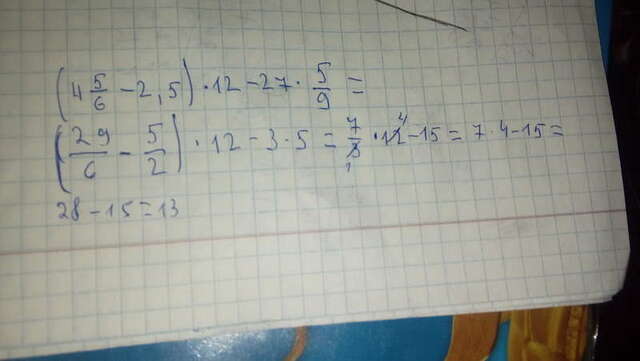 (4 5/6 - 2,5) · 12 - 27 · 5/9 =
(29/6 - 5/2) · 12 - 3 · 5 = 7/3 · 12 - 15 = 7 · 4 - 15 =
28 - 15 = 13